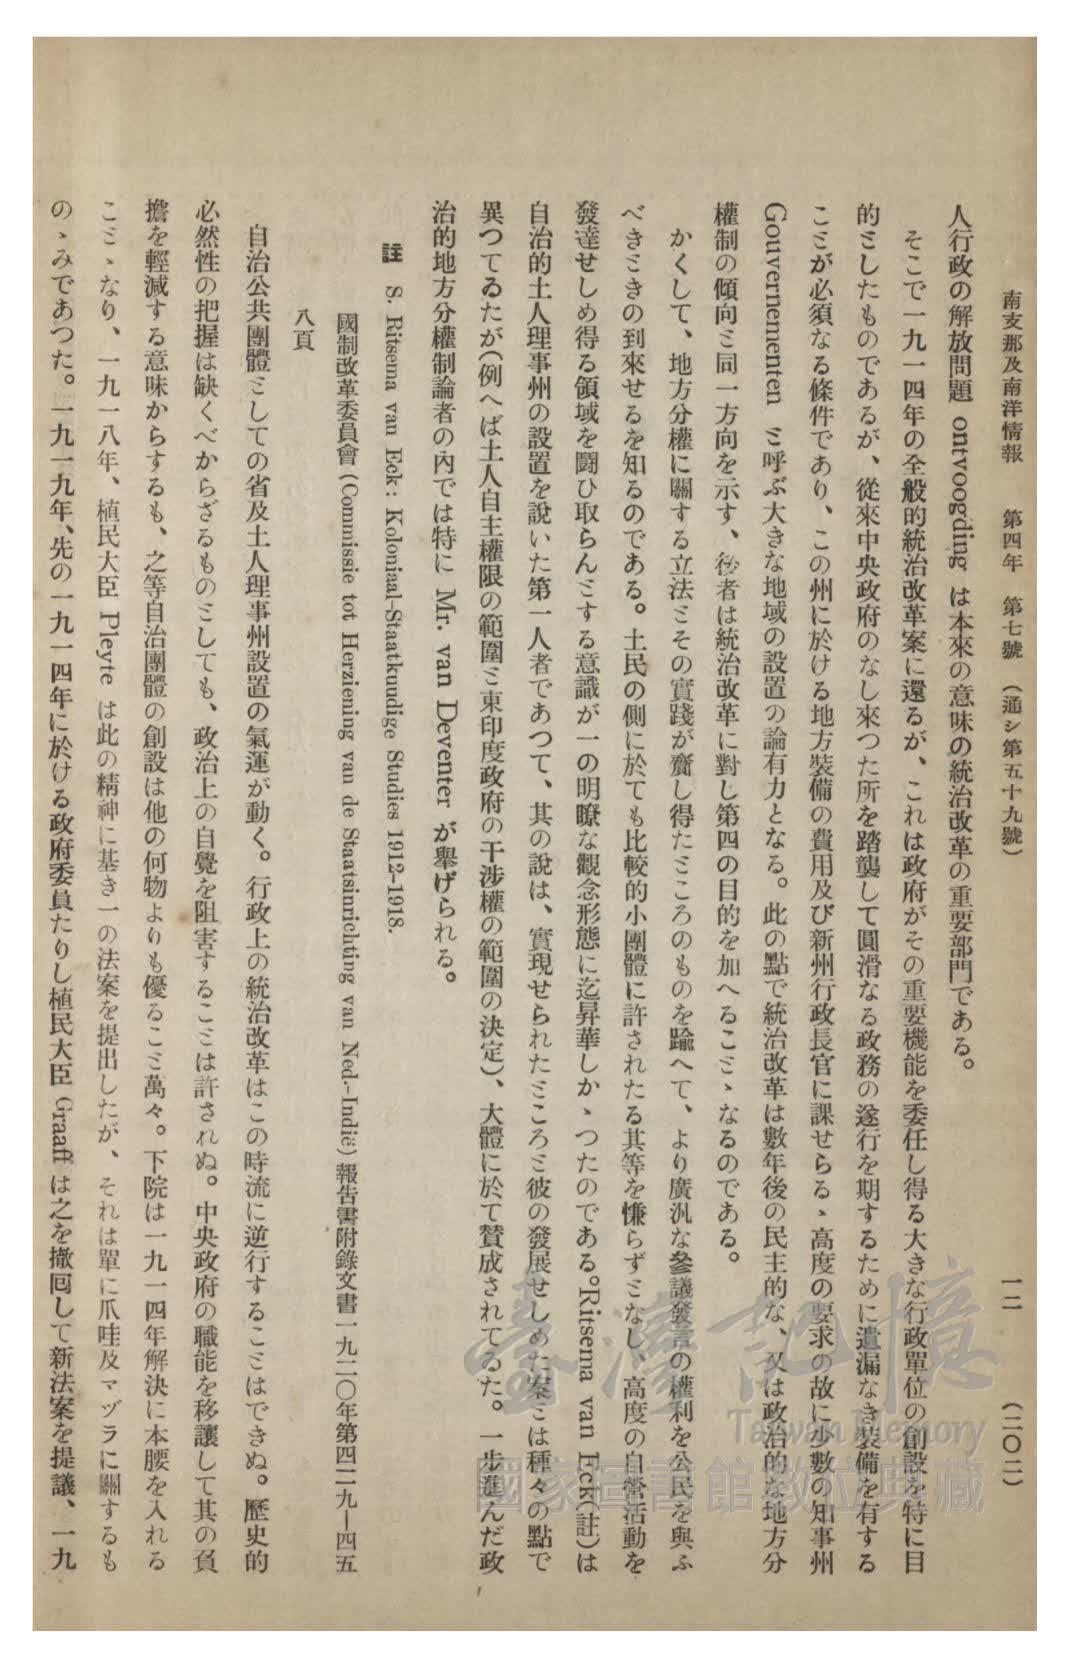 南支那及南洋情報　第四年　第七號　（通シ第五十九號）　一二　（二〇二）
人行政の解放問題 ontvoogding は本來の意味の統治改革の重要部門である。
そこで一九一四年の全般的統治改革案に還るが、これは政府がその重要機能を委任し得る大きな行政單位の創設を特に目
的としたものであるが、從來中央政府のなし來つた所を踏襲して圓滑なる政務の遂行を期するために遺漏なき裝備を有する
ことが必須なる條件であり、この州に於ける地方裝備の費用及び新州行政長官に課せらるゝ高度の要求の故に少數の知事州
Gouvernementen と呼ぶ大きな地域の設置の論有力となる。此の點で統治改革は數年後の民主的な、又は政治的な地方分
權制の傾向と同一方向を示す、後者は統治改革に對し第四の目的を加へることゝなるのである。
かくして、地方分權に關する立法とその實踐が齎し得たところのものを踰へて、より廣汎な參議發言の權利を公民を與ふ
べきときの到來せるを知るのである。土民の側に於ても比較的小團體に許されたる其等を慊らずとなし、高度の自營活動を
發達せしめ得る領域を鬪ひ取らんとする意識が一の明瞭な觀念形態に迄昇華しかゝつたのである。Ritsema van Eck(註)は
自治的土人理事州の設置を說いた第一人者であつて、其の說は、實現せられたところと彼の發展せしめた案とは種々の點で
異つてゐたが(例へば土人自主權限の範圍と東印度政府の干渉權の範圍の決定)、大體に於て賛成されてゐた。一步進んだ政
治的地方分權制論者の內では特に Mr. van Deventer が擧げられる。
註　S. Ritsema van Eck: Koloniaal-Staatkuudige Studies 1912-1918.
國制改革委員會 (Commissie tot Herziening van de Staatsinrichting van Ned.-Indië) 報告書附錄文書一九二〇年第四二九—四五
八頁
自治公共團體としての省及土人理事州設置の氣運が動く。行政上の統治改革はこの時流に逆行することはできぬ。歷史的
必然性の把握は缺くべからざるものとしても、政治上の自覺を阻害することは許されぬ。中央政府の職能を移讓して其の負
擔を輕減する意味からするも、之等自治團體の創設は他の何物よりも優ること萬々。下院は一九一四年解決に本腰を入れる
ことゝなり、一九一八年、植民大臣 Pleyte は此の精神に基き一の法案を提出したが、それは單に爪哇及マヅラに關するも
のゝみであつた。一九一九年、先の一九一四年に於ける政府委員たりし植民大臣 Graaff は之を撤囘して新法案を提議、一九
臺灣記憶
Taiwan Memory
國家圖書館數位典藏